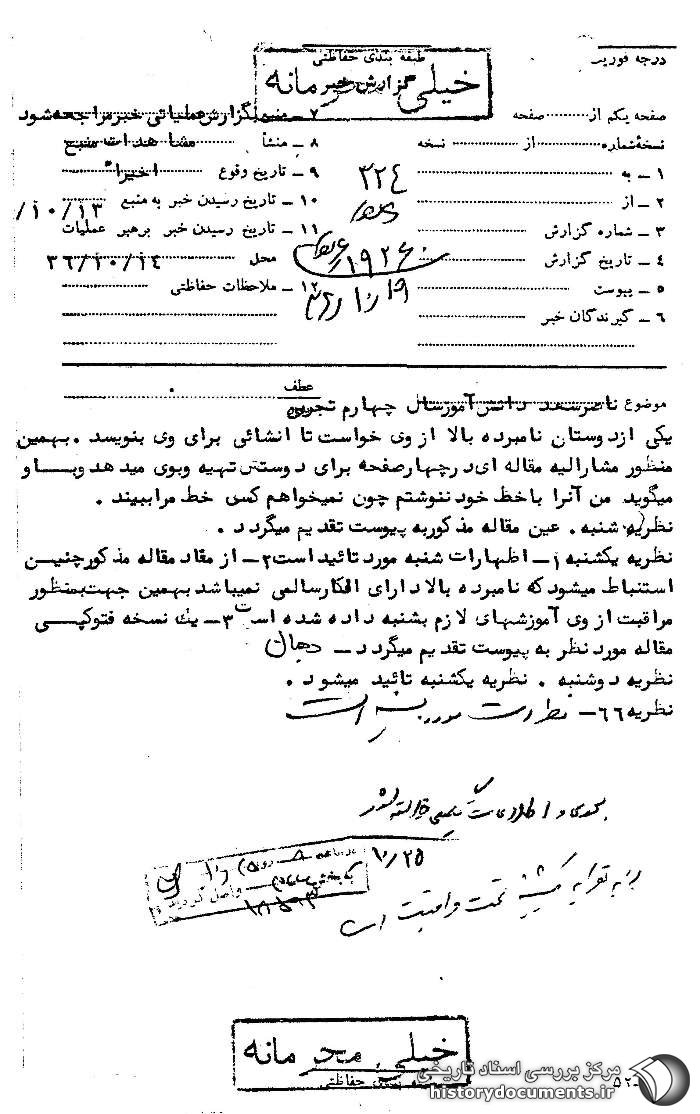 درجه فوریت
طبقه بندی حفاظتی
خیلی محرمانه
گزارش خبر
صفحه یکم از صفحه
نسخه شماره از نسخه
۱ـ به ۳۲۴
۲ـ از
۳ـ شماره گزارش
۴ـ تاریخ گزارش
۵ـ پیوست
۶ـ گیرندگان خبر
۷ـ گزارش عملیاتی خبر مراجعه شود
۸ـ منشأ مشاهدات منبع
۹ـ تاریخ وقوع اخیرا"
۱۰ـ تاریخ رسیدن خبر به منبع ۱۰/۱۳/
۱۱ـ تاریخ رسیدن خبر برهبر عملیات
محل ۳۶/۱۰/۱٤
۱۲ـ ملاحظات حفاظتی
عطف
موضوع ناصر دانش آموز سال چهارم
یکی ازدوستان نامبرده بالا از وی خواست تا انشائی برای وی بنویسد . بهمین
منظور مشارالیه مقاله ای در چهارصفحه برای دوستش تهیه وبوی میدهد وباو
میگوید من آنرا باخط خود ننوشتم چون نمیخواهم کسی خط مراببیند .
نظریه شنبه . عین مقاله مذکوربه پیوست تقدیم میگردد .
نظریه یکشنبه ۱ـ اظهارات شنبه مورد تائید است ۲ـ از مفاد مقاله مذکورچنین
استنباط میشود که نامبرده بالا دارای افکارسالمی نمیباشد بهمین جهت بمنظور
مراقبت از وی آموزشهای لازم بشنبه داده شده است ۳ـ یك نسخه فتوکپی
مقاله مورد نظر به پیوست تقدیم میگردد ـ دهقان
نظریه دوشنبه . نظریه یکشنبه تائید میشود .
نظریه ٦٦ـ
۱۰/۲۵
واصل گردید
خیلی محرمانه
طبقه بندی حفاظتی
۵۲ـ
مرکز بررسی اسناد تاریخی
historydocuments.ir